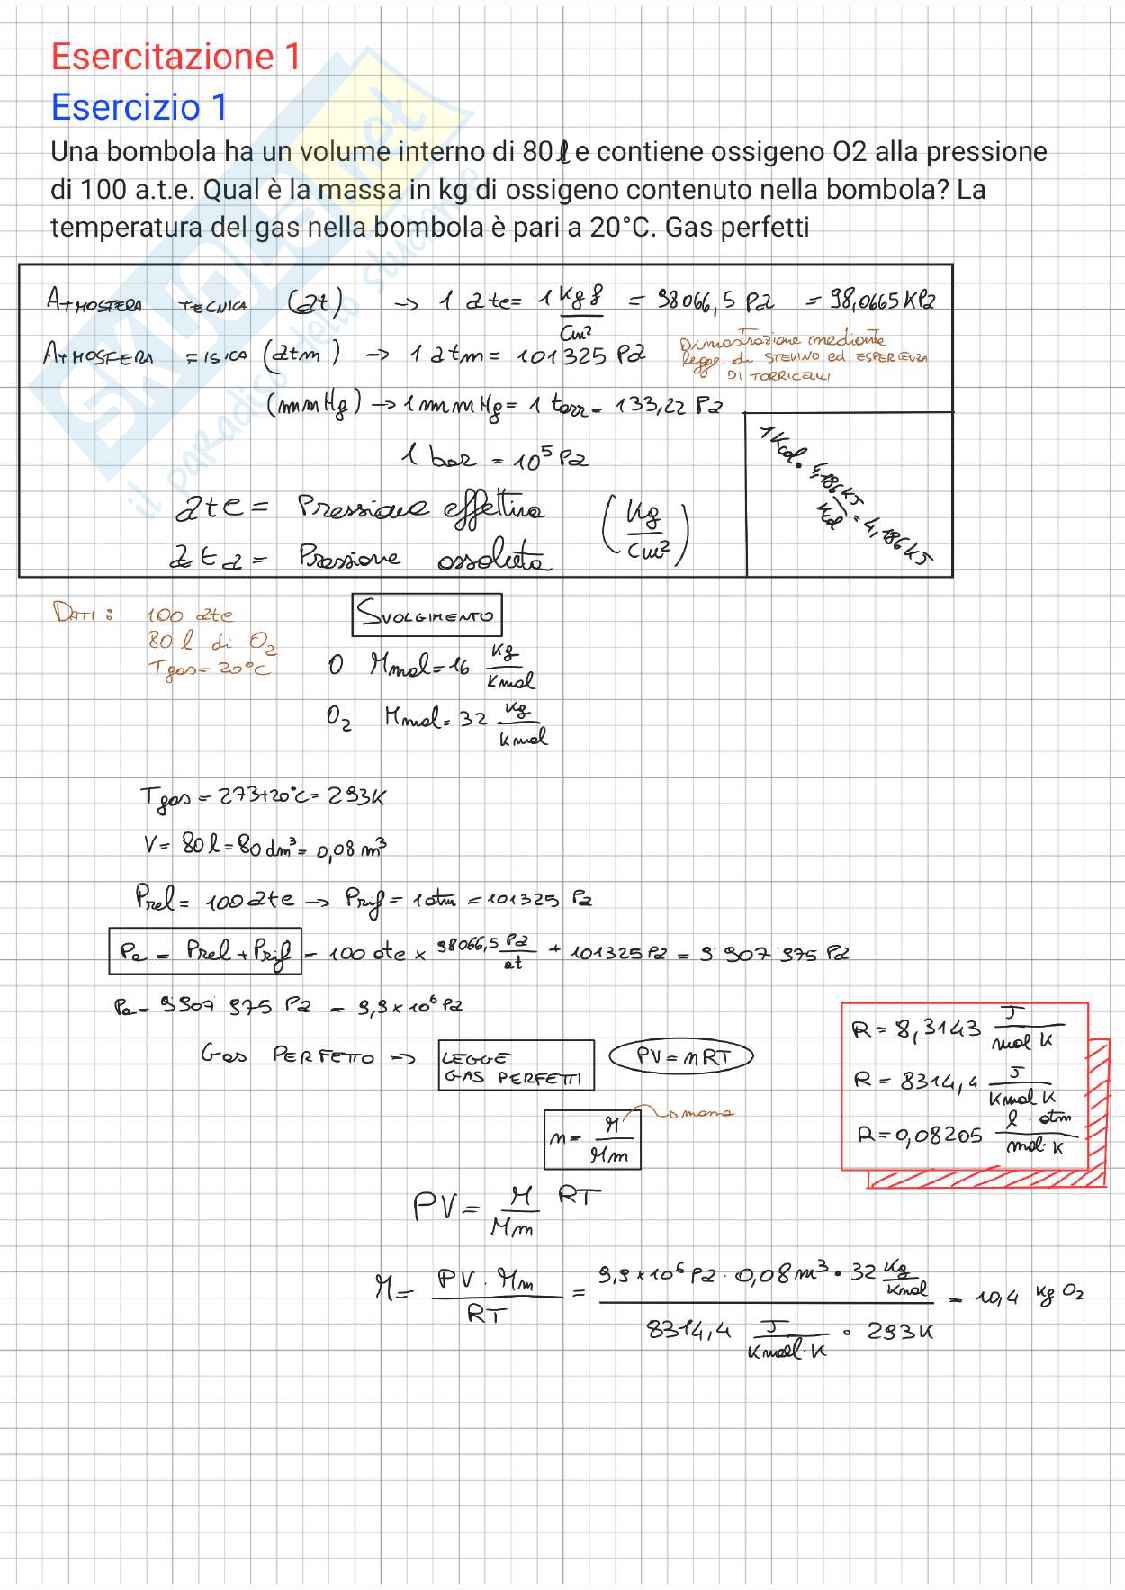 Esercitazione 1
Esercizio 1
Una bombola ha un volume interno di 80 ℓ e contiene ossigeno O2 alla pressione
di 100 a.t.e. Qual è la massa in kg di ossigeno contenuto nella bombola? La
temperatura del gas nella bombola è pari a 20°C. Gas perfetti
SKUOLA.net
il paradiso dello studente
ATMOSFERA TECNICA (at) → 1 ate = 1 Kgf/cm² = 98066,5 Pa = 98,0665 KPa
ATMOSFERA FISICA (atm) → 1 atm = 101325 Pa
Dimostrazione mediante
legge di STEVINO ed ESPERIENZA
DI TORRICELLI
(mmHg) → 1 mmHg = 1 torr = 133,22 Pa
1 bar = 10⁵ Pa
1 Kcal · 4,186 KJ/Kcal = 4,186 KJ
ate = Pressione effettiva (Kg/cm²)
ata = Pressione assoluta
DATI: 100 ate
80 l di O₂
Tgas = 20°C
SVOLGIMENTO
O Mmol = 16 Kg/Kmol
O₂ Mmol = 32 Kg/Kmol
Tgas = 273+20°C = 293K
V = 80 l = 80 dm³ = 0,08 m³
Prel = 100 ate → Prif = 1 atm = 101325 Pa
Pa = Prel + Prif = 100 ate × 98066,5 Pa/at + 101325 Pa = 9 907 975 Pa
Pa = 9907 975 Pa = 9,9 × 10⁶ Pa
Gas PERFETTO → LEGGE GAS PERFETTI PV = nRT
n = M/Mm → massa
R = 8,3143 J/mol K
R = 8314,4 J/Kmol K
R = 0,08205 l · atm/mol · K
PV = M/Mm RT
M = PV · Mm/RT = 9,9 × 10⁶ Pa · 0,08 m³ · 32 Kg/Kmol / 8314,4 J/Kmol · K · 293K = 10,4 Kg O₂